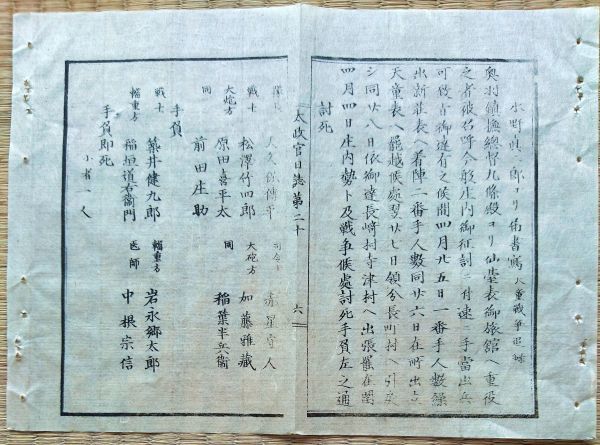 水野眞一郎ヨリ届書寫 天童戰爭
奥羽鎮撫總督九條殿ヨリ仙䑓表御旅舘ヘ重役
之者被召呼今般庄内御征討ニ付速ニ手當出兵
可致旨御達有之候間四月廿五日一番手人數繰
出新荘表ヘ着陣二番手人數同廿六日在所出立
天童表ヘ罷越候處翌廿七日領分長町村ヘ引戻
シ同廿八日依御達長﨑村寺津村ヘ出張罷在閏
四月四日庄内勢ト及戦争候處討死手負左之通
討死
太政官日誌第二十
六
大久保傳平
赤星守人
戰士
松澤竹四郎
大砲方
加藤雅藏
大炮方
原田喜平太
同
稲葉半兵衞
同
前田庄助
手負
戰士
藥井健九郎
輜重方
岩永郷太郎
輜重方
稲垣道右衞門
医師
中根宗信
手負即死
小者一人